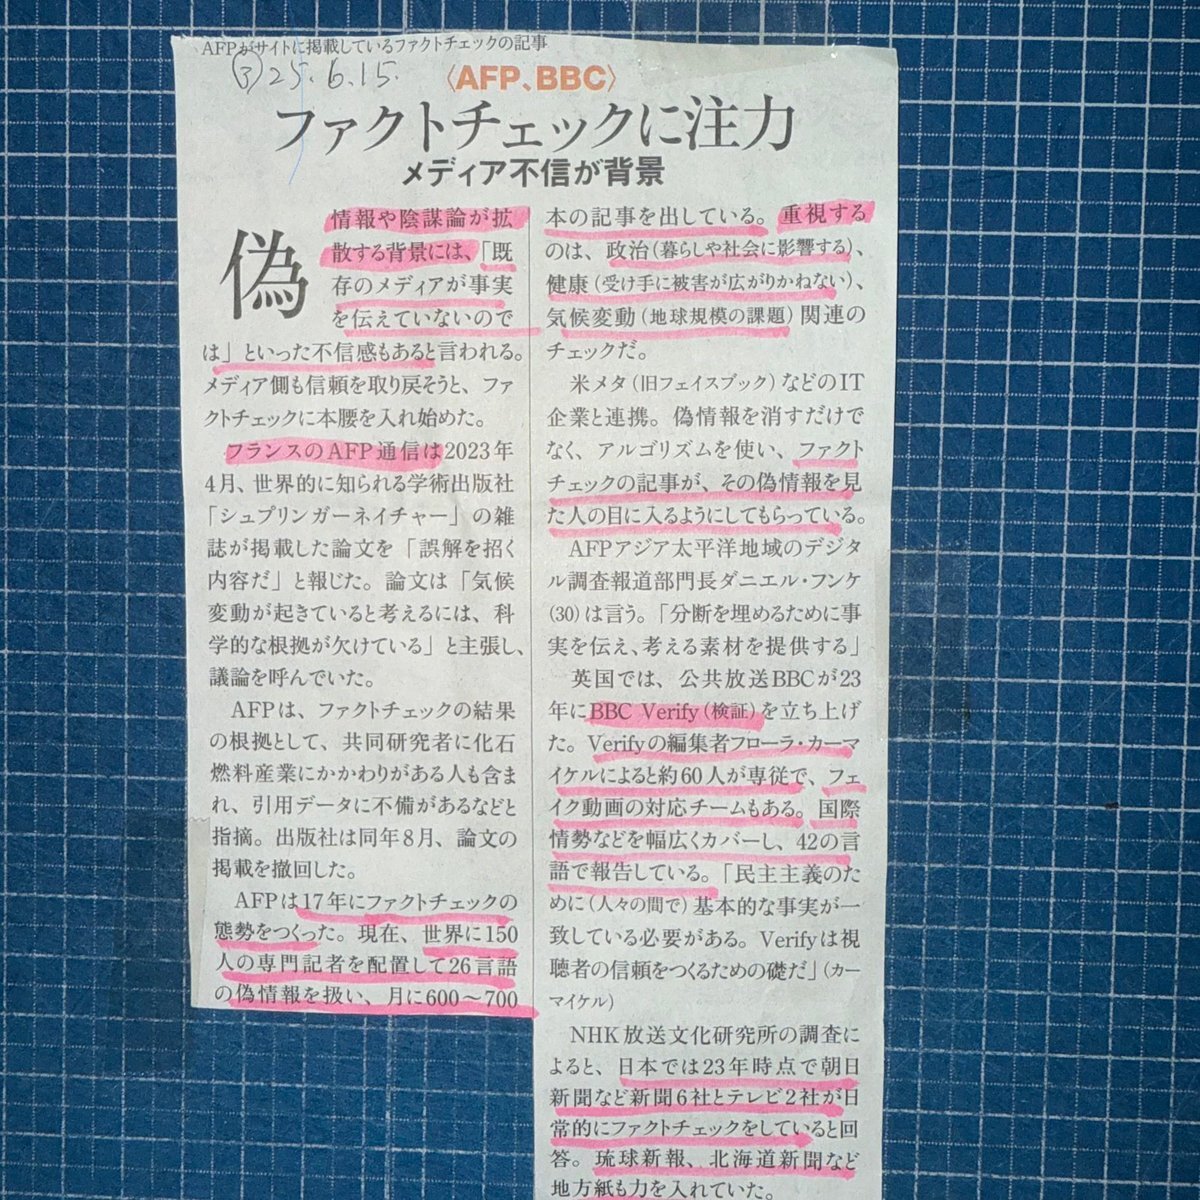 AFPがサイトに掲載しているファクトチェックの記事
③25.6.15.
〈AFP、BBC〉
ファクトチェックに注力
メディア不信が背景
偽情報や陰謀論が拡
散する背景には、「既
存のメディアが事実
を伝えていないので
は」といった不信感もあると言われる。
メディア側も信頼を取り戻そうと、ファ
クトチェックに本腰を入れ始めた。
フランスのAFP通信は2023年
4月、世界的に知られる学術出版社
「シュプリンガーネイチャー」の雑
誌が掲載した論文を「誤解を招く
内容だ」と報じた。論文は「気候
変動が起きていると考えるには、科
学的な根拠が欠けている」と主張し、
議論を呼んでいた。
AFPは、ファクトチェックの結果
の根拠として、共同研究者に化石
燃料産業にかかわりがある人も含ま
れ、引用データに不備があるなどと
指摘。出版社は同年8月、論文の
掲載を撤回した。
AFPは17年にファクトチェックの
態勢をつくった。現在、世界に150
人の専門記者を配置して26言語
の偽情報を扱い、月に600〜700
本の記事を出している。重視する
のは、政治（暮らしや社会に影響する）、
健康（受け手に被害が広がりかねない）、
気候変動（地球規模の課題）関連の
チェックだ。
米メタ（旧フェイスブック）などのIT
企業と連携。偽情報を消すだけで
なく、アルゴリズムを使い、ファクト
チェックの記事が、その偽情報を見
た人の目に入るようにしてもらっている。
AFPアジア太平洋地域のデジタ
ル調査報道部門長ダニエル・フンケ
(30)は言う。「分断を埋めるために事
実を伝え、考える素材を提供する」
英国では、公共放送BBCが23
年にBBC Verify（検証）を立ち上げ
た。Verifyの編集者フローラ・カーマ
イケルによると約60人が専従で、フェ
イク動画の対応チームもある。国際
情勢などを幅広くカバーし、42の言
語で報告している。「民主主義のた
めに（人々の間で）基本的な事実が一
致している必要がある。Verifyは視
聴者の信頼をつくるための礎だ」（カー
マイケル）
NHK放送文化研究所の調査に
よると、日本では23年時点で朝日
新聞など新聞6社とテレビ2社が日
常的にファクトチェックをしていると回
答。琉球新報、北海道新聞など
地方紙も力を入れていた。